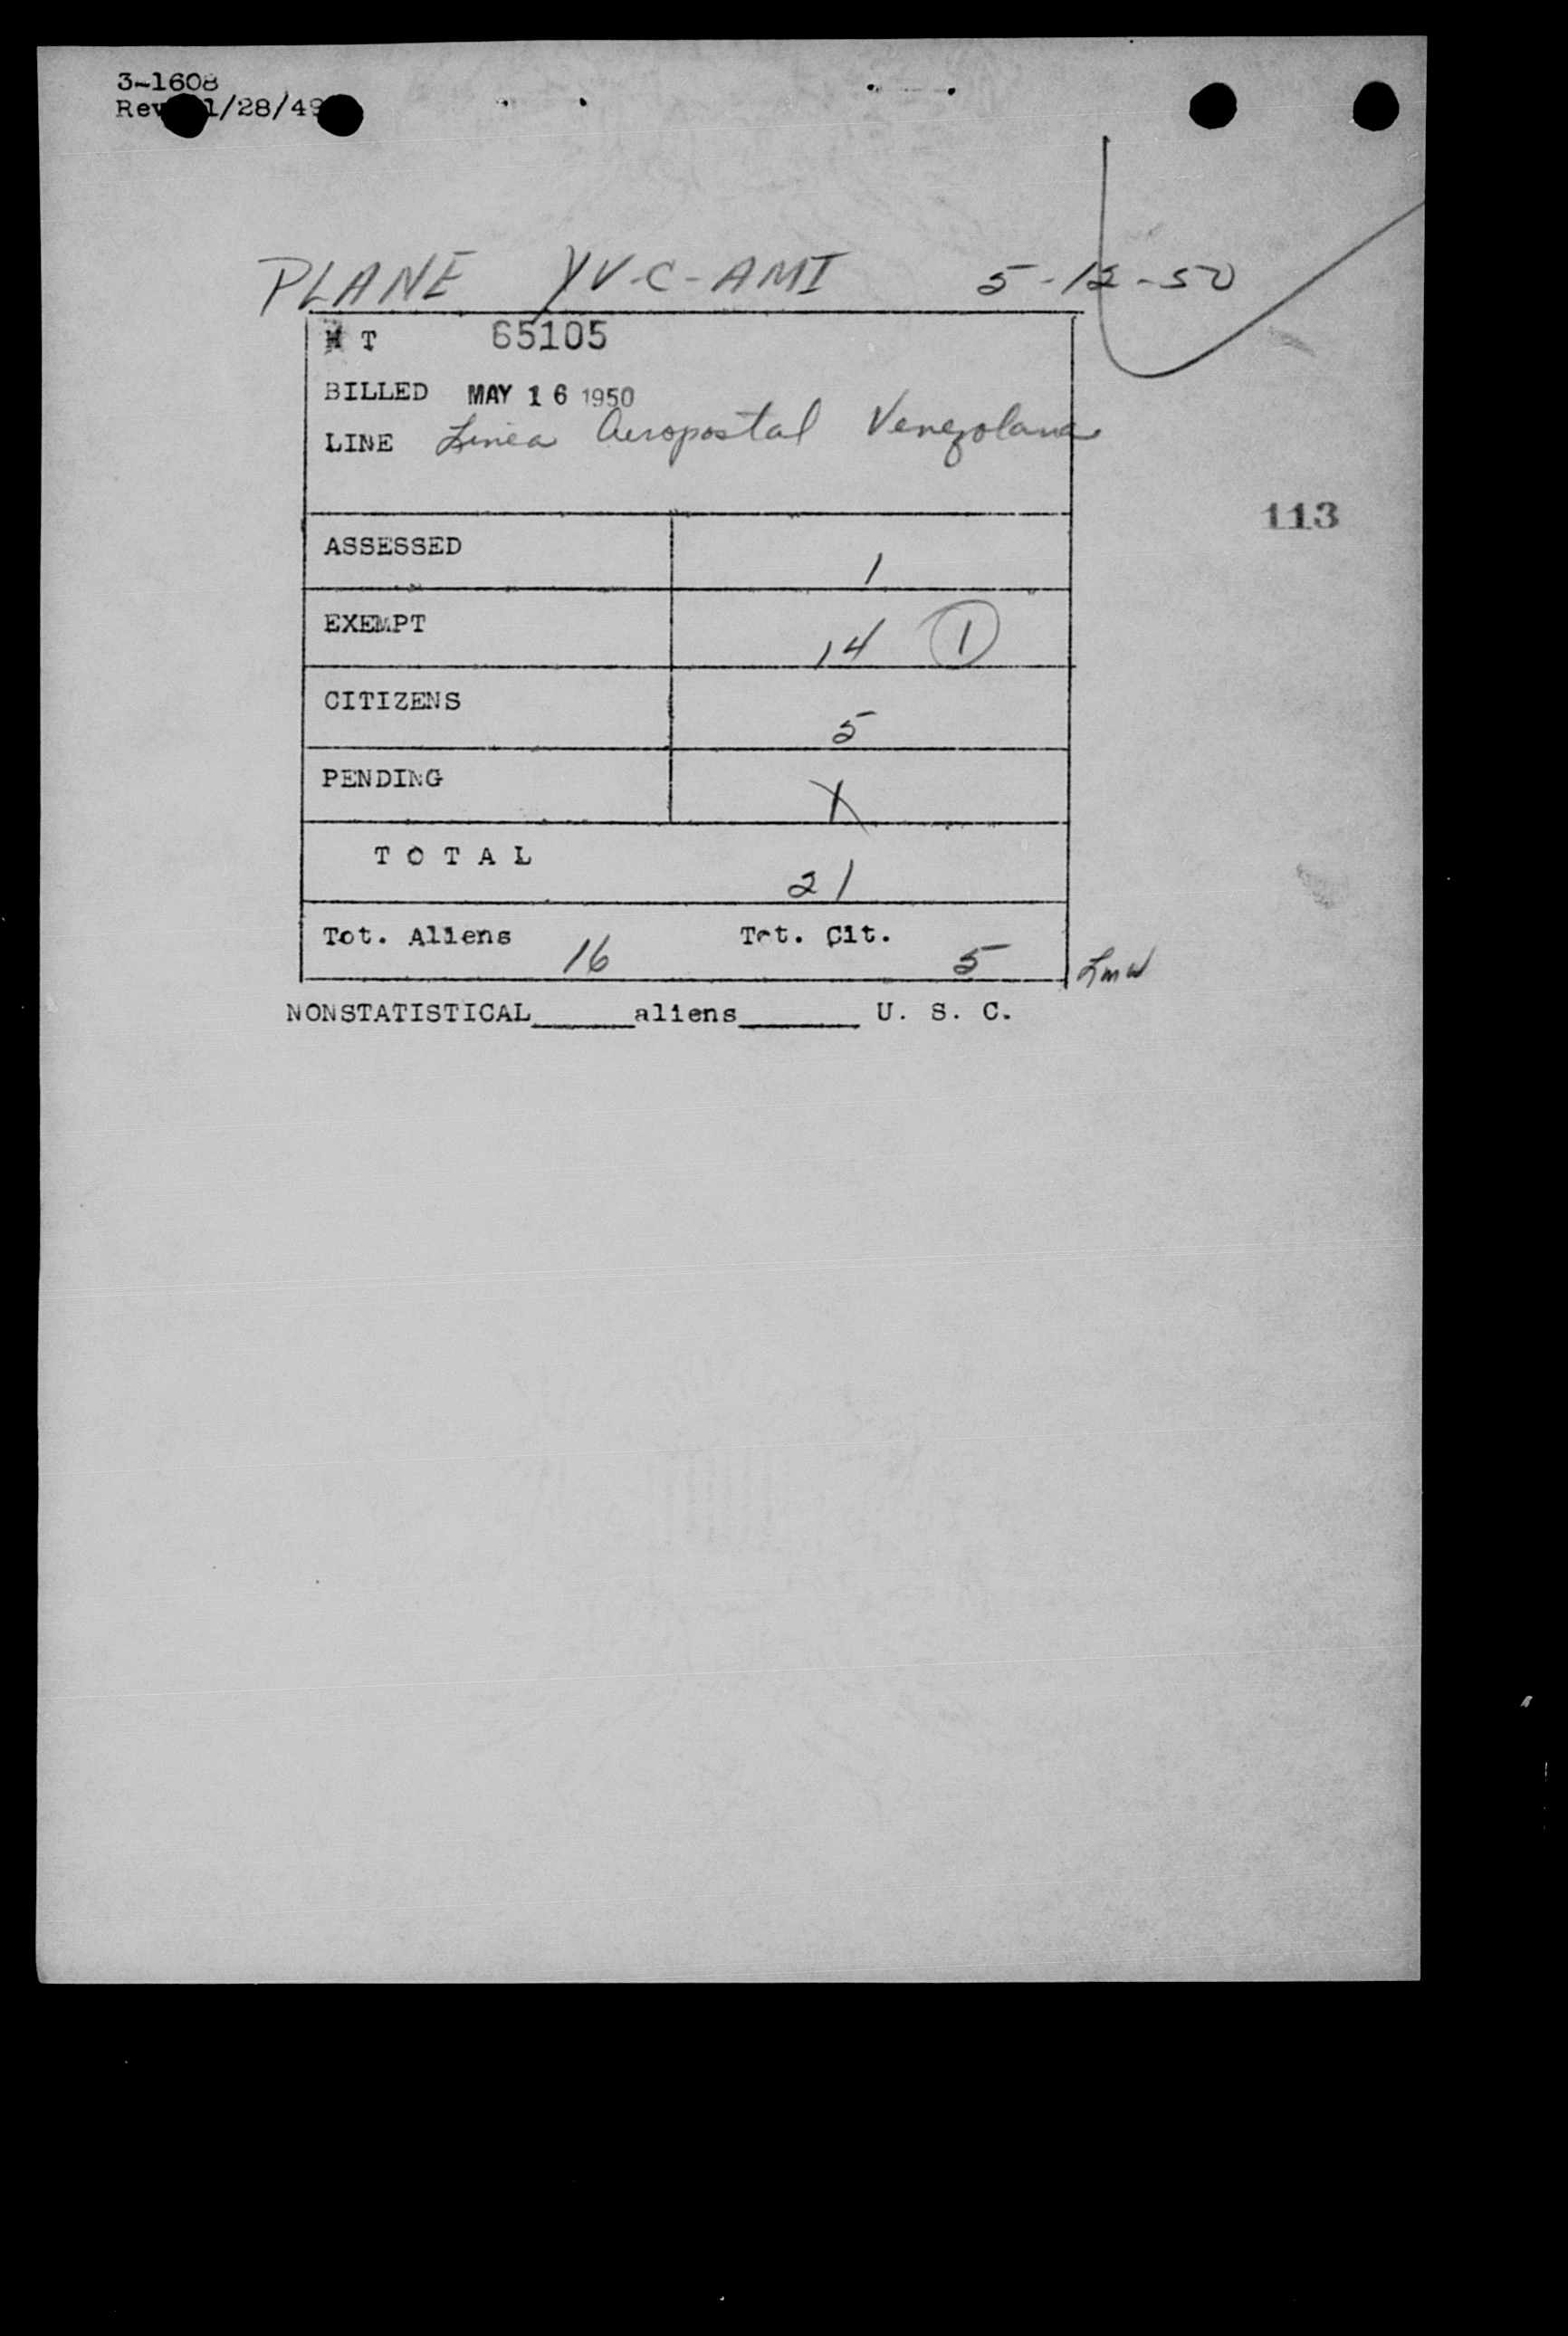 3-1608
Rev 1/28/49
PLANE YV-C-AMI 5-12-50
H T 65105
BILLED MAY 16 1950
LINE Linea Aeropostal Venezolana
113
ASSESSED 1
EXEMPT 14 1
CITIZENS 5
PENDING 1
TOTAL 21
Tot. Aliens 16 Tot. Cit. 5 LMW
NONSTATISTICAL______aliens_______ U. S. C.